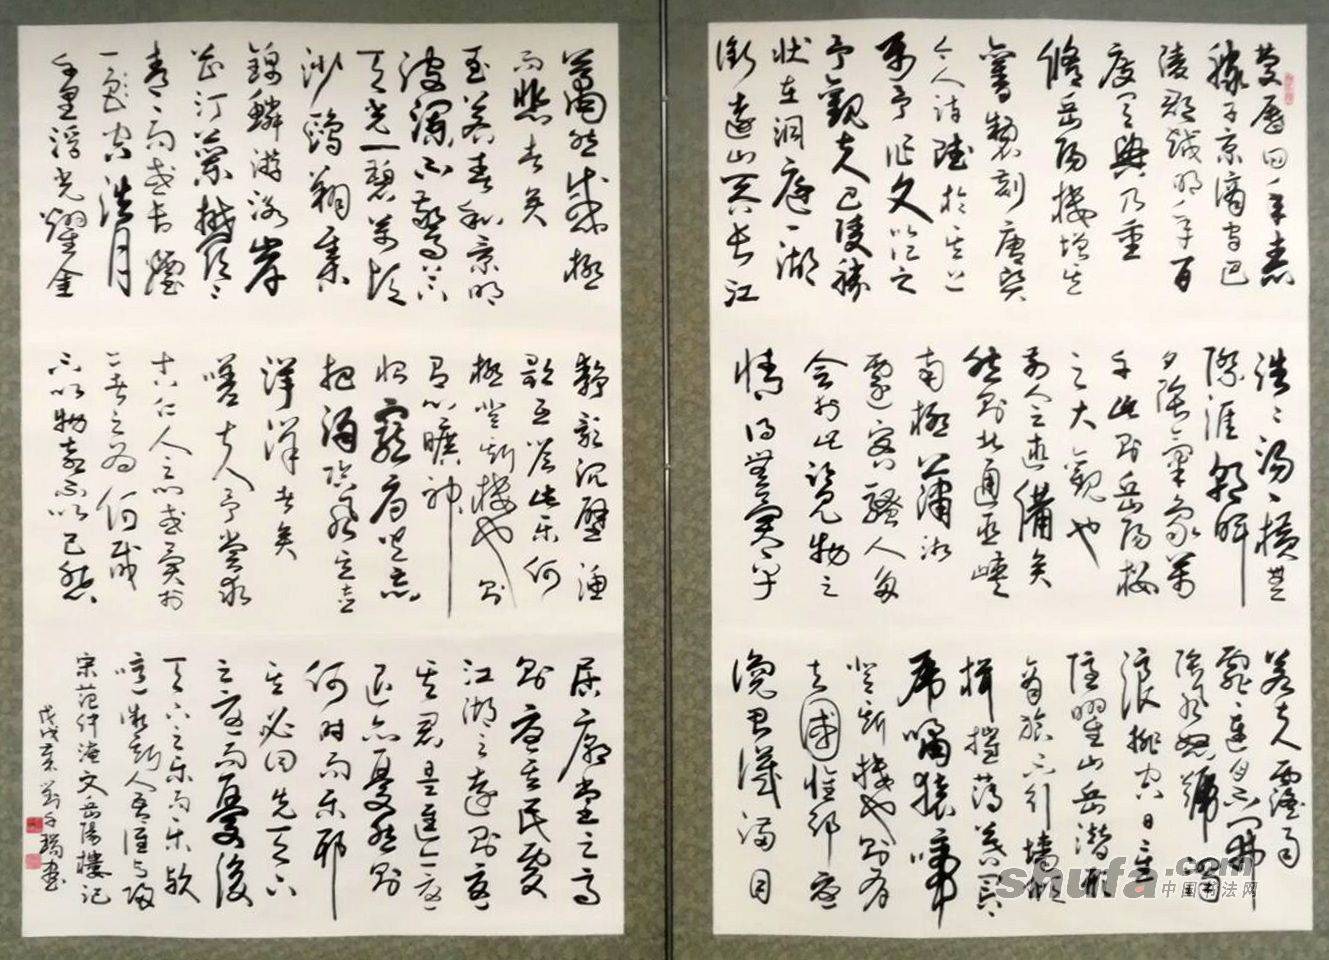 慶曆四年春
滕子京謫守巴
陵郡越明年百
廢具興乃重
修岳陽樓增其
舊製刻唐賢
今人詩賦於其上
屬予作文以記之
予觀夫巴陵勝
狀在洞庭一湖
銜遠山吞長江
浩浩湯湯橫無
際涯朝暉
夕陰氣象萬
千此則岳陽樓
之大觀也
前人之述備矣
然則北通巫峽
南極瀟湘
遷客騷人多
會於此覽物之
情得無異乎
若夫霪雨
霏霏連月不開
陰風怒號濁
浪排空日星
隱曜山岳潛形
商旅不行檣傾
楫摧薄暮冥冥
虎嘯猿啼
登斯樓也則有
去國懷鄉憂
讒畏譏滿目
蕭然感極
而悲者矣
至若春和景明
波瀾不驚上下
天光一碧萬頃
沙鷗翔集
錦鱗游泳岸
芷汀蘭郁郁
青青而或長煙
一空皓月
千里浮光躍金
靜影沉璧漁
歌互答此樂何
極登斯樓也則
有心曠神
怡寵辱皆忘
把酒臨風其喜
洋洋者矣
嗟夫予嘗求
古仁人之心或異於
二者之為何哉
不以物喜不以己悲
居廟堂之高
則憂其民處
江湖之遠則憂
其君是進亦憂
退亦憂然則
何時而樂耶
其必曰先天下
之憂而憂後
天下之樂而樂歟
噫微斯人吾誰與歸
宋范仲淹文岳陽樓記
戊戌 書
shufa.com
中国书法网